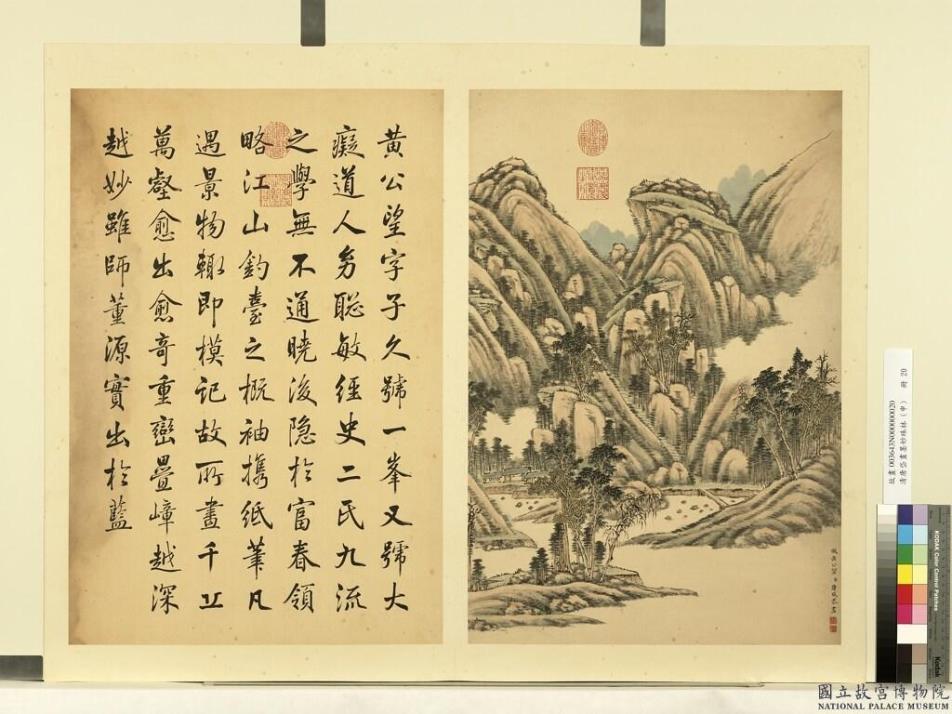 黄公望字子久號一峯又號大
癡道人㓜聡敏經史二氏九流
之學無不通曉後隐扵富春領
略江山釣臺之概袖攜紙筆凡
遇景物輙即模記故所畫千丘
萬壑愈出愈竒重巒疊嶂越深
越妙雖師董源實出扵藍
故畫003643N000000020
清唐岱畫墨妙珠林(申) 冊 20
KODAK Color Control Patches
Kodak
國立故宮博物院
NATIONAL PALACE MUSEUM